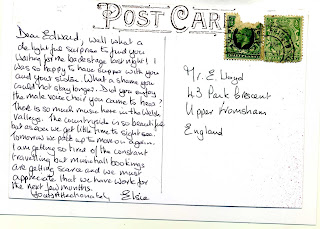 POST CARD
Dear Edward, Well what a
delightful surprise to find you
waiting for me backstage last night! I
was so happy to have supper with you
and your sister. What a shame you
could not stay longer. Did you enjoy
the male voice choir you came to hear?
There is so much music here in the Welsh
valleys. The countryside is so beautiful
but as ever we get little time to sight see.
Tomorrow we pack up to move on again.
I am getting so tired of the constant
travelling but musichall bookings
are getting scarce and we must
appreciate that we have work for
the next few months.
Yours Affectionately Elsie
Mr. E. Lloyd
43 Park Crescent
Upper
England